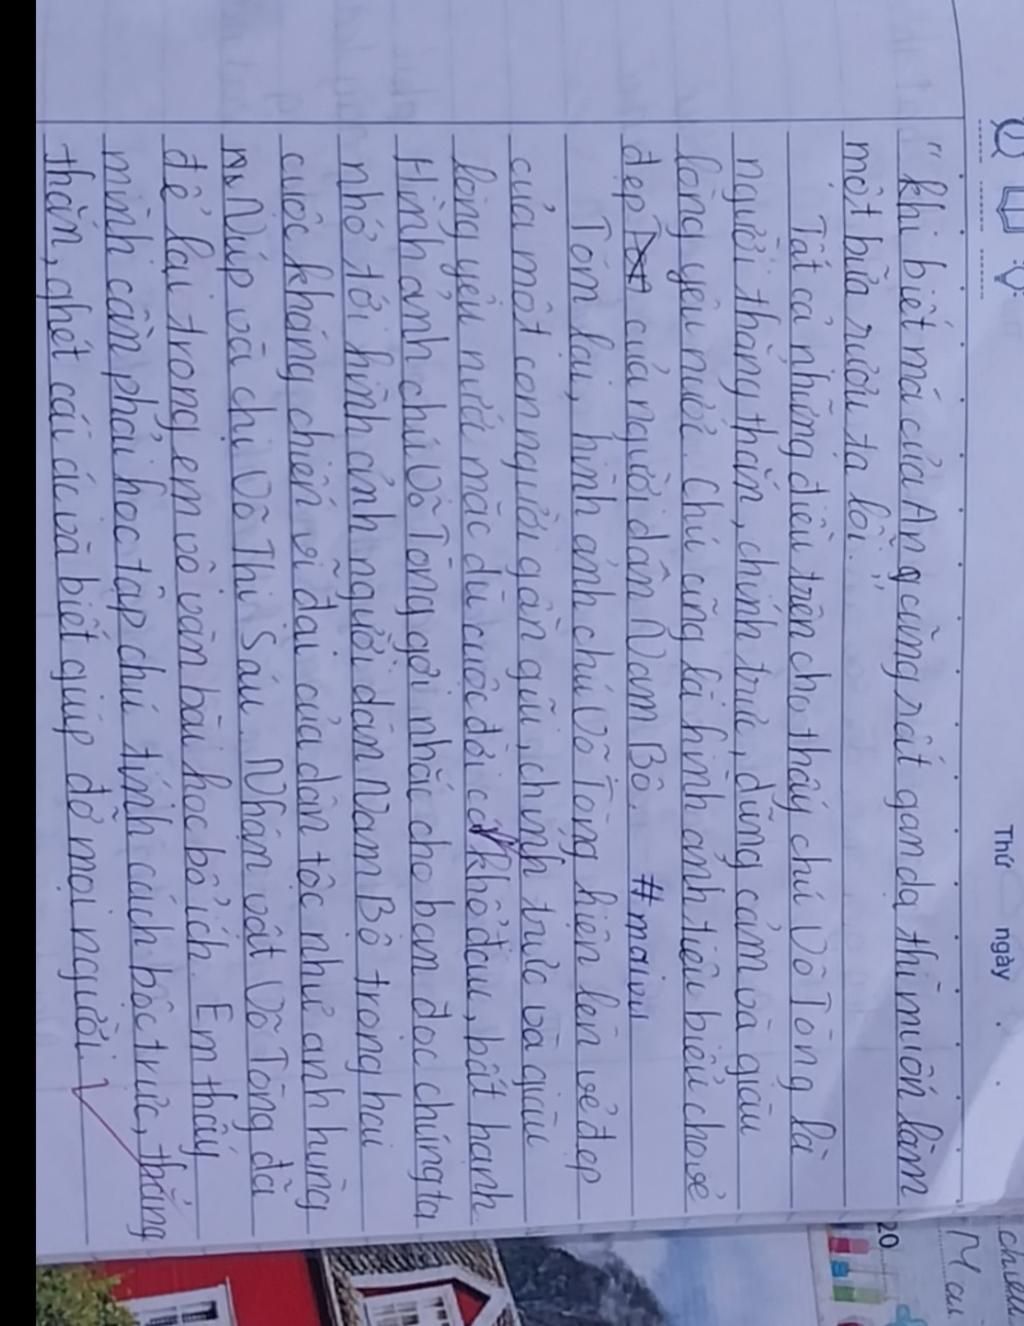 Thứ ngày
"khi biết má của An cũng rất gan dạ thì muốn làm
một bữa rượu tạ lỗi."
Tất cả những điều trên cho thấy chú Võ Tòng là
người thẳng thắn, chính trực, dũng cảm và giàu
lòng yêu nước. Chú cũng là hình ảnh tiêu biểu cho vẻ
đẹp của người dân Nam Bộ. #maivui
Tóm lại, hình ảnh chú Võ Tòng hiện lên vẻ đẹp
của một con người gần gũi, chính trực và giàu
lòng yêu nước mặc dù cuộc đời có khổ đau, bất hạnh.
Hình ảnh chú Võ Tòng gợi nhắc cho bạn đọc chúng ta
nhớ tới hình ảnh người dân Nam Bộ trong hai
cuộc kháng chiến vĩ đại của dân tộc như anh hùng
Núp và chị Võ Thị Sáu. Nhân vật Võ Tòng đã
để lại trong em vô vàn bài học bổ ích. Em thấy
mình cần phải học tập chú tính cách bộc trực, thẳng
thắn, ghét cái ác và biết giúp đỡ mọi người.
chiều
Mai
20